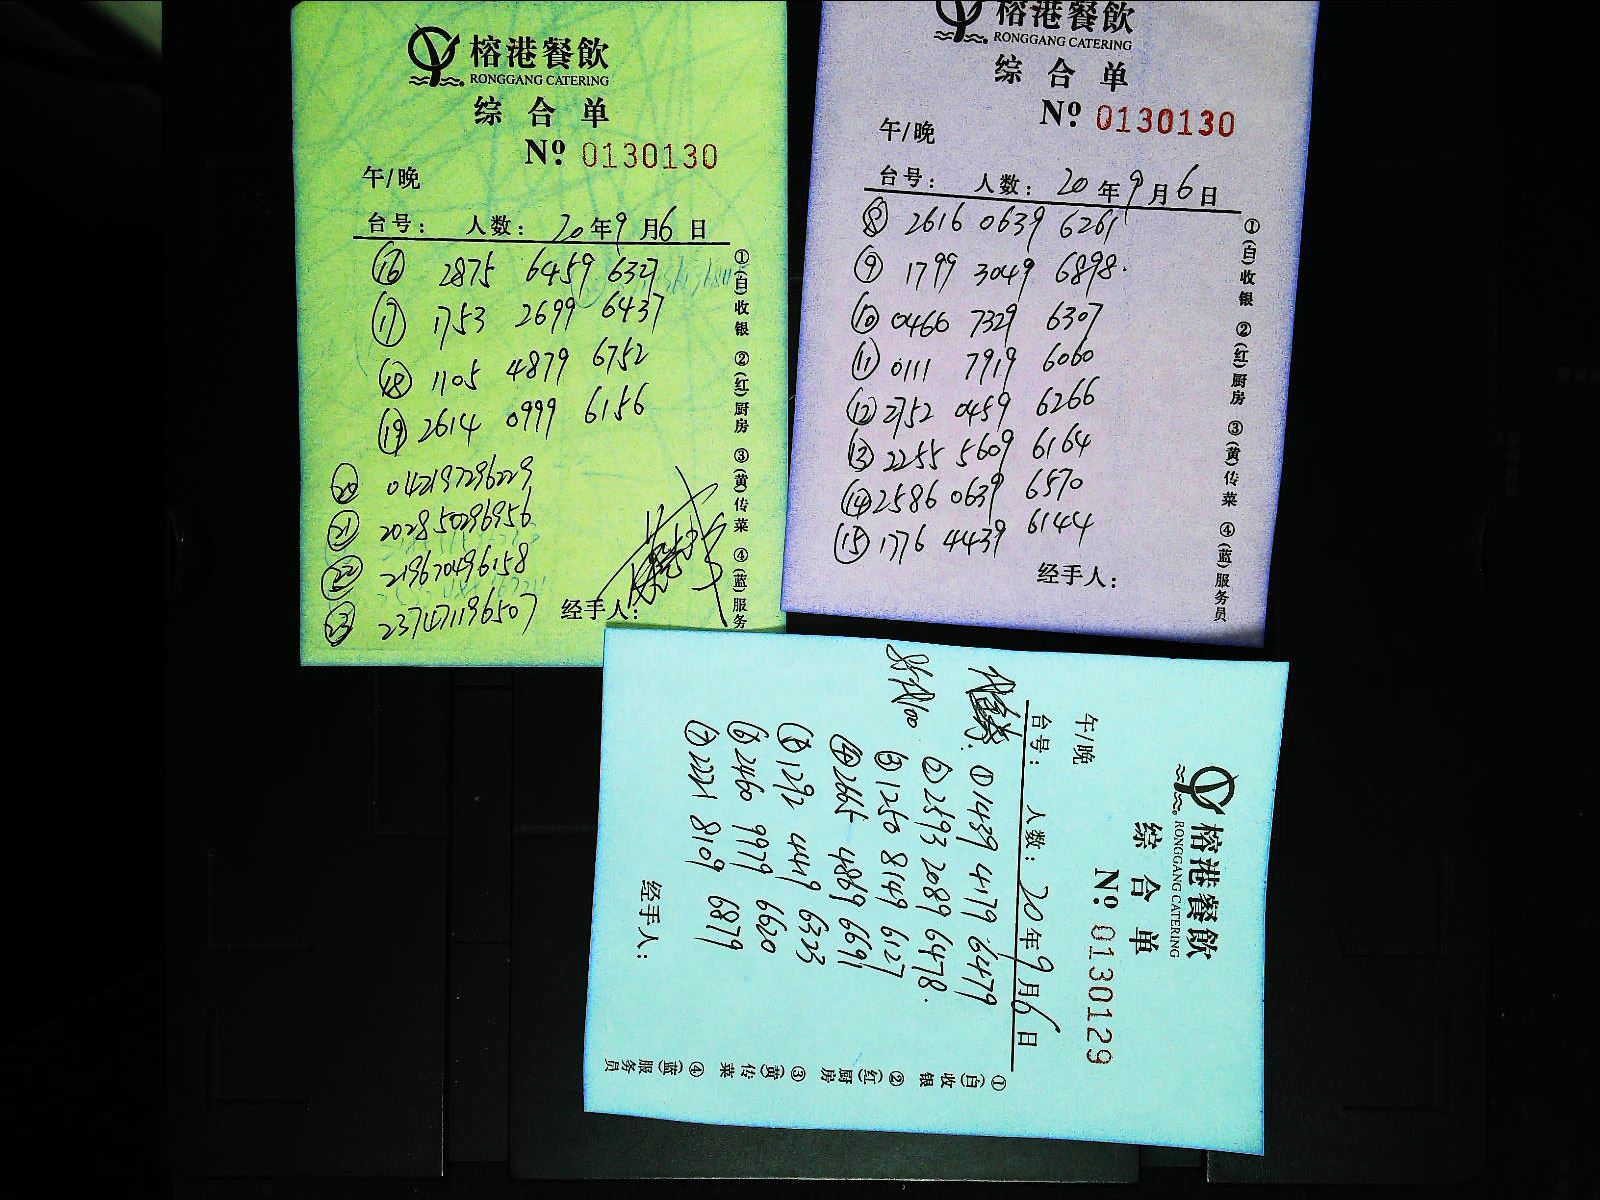 榕港餐飲
RONGGANG CATERING
综合单
Nº 0130130
午/晚
台号： 人数： 20年9月6日
⑯ 2875 6459 6327
⑰ 1753 2699 6437
⑱ 1105 4879 6752
⑲ 2614 0999 6156
⑳ 042197296229
㉑ 202850296956
㉒ 219670496158
㉓ 237471196507
经手人：
①(白)收银 ②(红)厨房 ③(黄)传菜 ④(蓝)服务
榕港餐飲
RONGGANG CATERING
综合单
Nº 0130130
午/晚
台号： 人数： 20年9月6日
⑧ 2616 0639 6261
⑨ 1799 3049 6898.
⑩ 0466 7329 6307
⑪ 0111 7919 6060
⑫ 2752 0459 6266
⑬ 2255 5609 6164
⑭ 2586 0639 6570
⑮ 1776 4439 6144
经手人：
①(白)收银 ②(红)厨房 ③(黄)传菜 ④(蓝)服务员
榕港餐飲
RONGGANG CATERING
综合单
Nº 0130129
午/晚
台号： 人数： 20年9月6日
① 1439 4179 6479
② 2593 2089 6478.
③ 1250 8149 6127
④ 2665 4869 6691
⑤ 1292 4449 6323
⑥ 2460 9979 6620
⑦ 2221 8109 6879
经手人：
①(白)收银 ②(红)厨房 ③(黄)传菜 ④(蓝)服务员